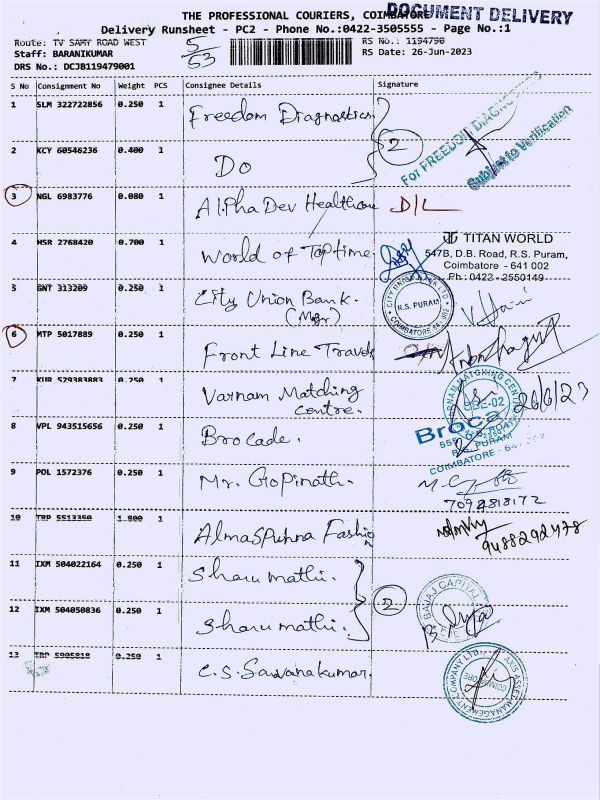 THE PROFESSIONAL COURIERS, COIMBATORE
DOCUMENT DELIVERY
Delivery Runsheet - PC2 - Phone No.:0422-3505555 - Page No.:1
Route: TV SAMY ROAD WEST
5/53
RS No.: 1194790
Staff: BARANIKUMAR
RS Date: 26-Jun-2023
DRS No.: DCJB119479001
S No Consignment No Weight PCS Consignee Details Signature
1 SLM 322722856 0.250 1 Freedom Diagnostics
For FREEDOM DIAGNOSTICS
Subject to Verification
2
2 KCY 60546236 0.400 1 Do
3 NGL 6983776 0.080 1 Alpha Dev Healthcare D/L
4 HSR 2768420 0.700 1 World of Toptime
TITAN WORLD
547B, D.B. Road, R.S. Puram,
Coimbatore - 641 002
Ph : 0422 - 2550149
5 GNT 313209 0.250 1 City Union Bank.
(Mgr)
CITY UNION BANK LTD
R.S. PURAM
COIMBATORE 641 002
6 MTP 5017889 0.250 1 Front Line Travels
7 KUR 529383883 0.250 1 Varnam Matching
Centre.
VARNAM MATCHING CENTRE
CBE-02
26/6/23
8 VPL 943515656 0.250 1 Brocade.
R.S. PURAM
COIMBATORE - 641 002
9 POL 1572376 0.250 1 Mr. Gopinath.
7094818172
10 TRP 5513350 1.800 1 Almaspurna Fashion
9488292478
11 IXM 504022164 0.250 1 Sharumathi.
2
BAJAJ CAPITAL
12 IXM 504050836 0.250 1 Sharumathi.
13 TRP 5905818 0.250 1 C.S. Sawanakumar.
AXIS ASSET MANAGEMENT COMPANY LTD
COIMBATORE